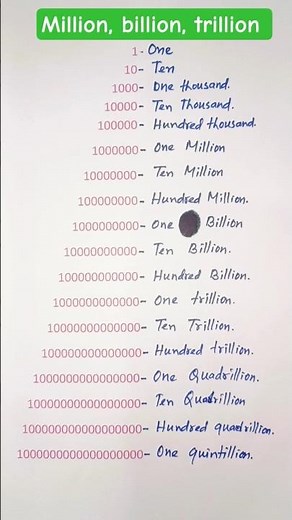 Million, billion, trillion
1- One
10- Ten
1000- One thousand.
10000- Ten Thousand.
100000- Hundred thousand.
1000000- One Million
10000000- Ten Million
100000000- Hundred Million.
1000000000- One Billion
10000000000- Ten Billion.
100000000000- Hundred Billion.
1000000000000- One trillion.
10000000000000- Ten Trillion.
100000000000000- Hundred trillion.
1000000000000000- One Quadrillion.
10000000000000000- Ten Quadrillion
100000000000000000- Hundred quadrillion.
1000000000000000000- One quintillion.